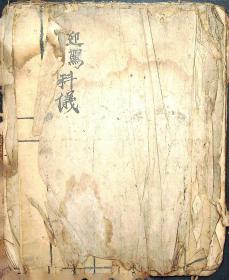 迎駕科儀